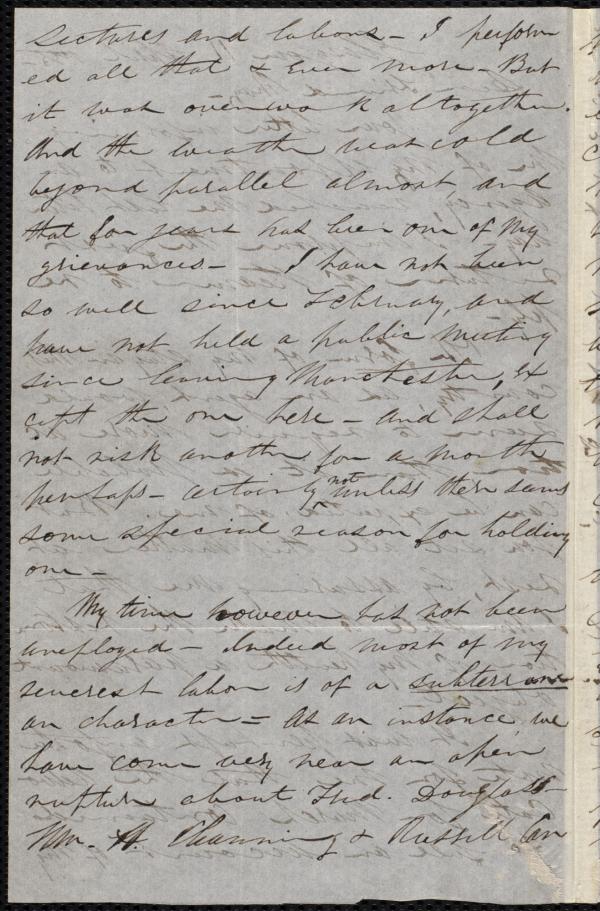 lectures and labors - I perform
ed all that & even more - But
it was overwork altogether.
And the weather was cold
beyond parallel almost, and
that for years has been one of my
grievances - I have not been
so well since February, and
have not held a public meeting
since leaving Manchester, ex
cept the one here - and shall
not risk another for a month
perhaps - certainly not unless there seems
some special reason for holding
one -
My time however has not been
unemployed - Indeed most of my
severest labor is of a subterrane
an character - As an instance, we
have come very near an open
rupture about Fred. Douglass -
Wm. H. Channing & Russell Car